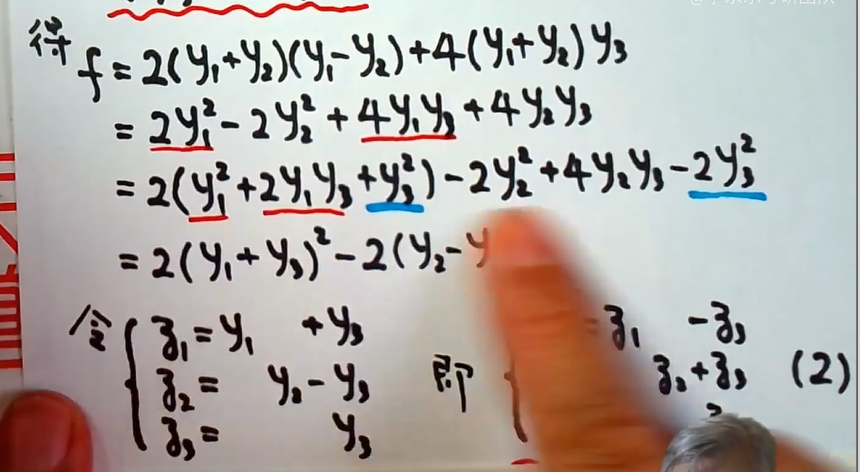 得 f = 2(y₁+y₂)(y₁-y₂)+4(y₁+y₂)y₃
= 2y₁² - 2y₂² + 4y₁y₃ + 4y₂y₃
= 2(y₁²+2y₁y₃+y₃²)-2y₂²+4y₂y₃-2y₃²
= 2(y₁+y₃)²-2(y₂-y
令 { z₁=y₁ +y₃
z₂= y₂-y₃
z₃= y₃
即 {
=z₁ -z₃
z₂+z₃ (2)